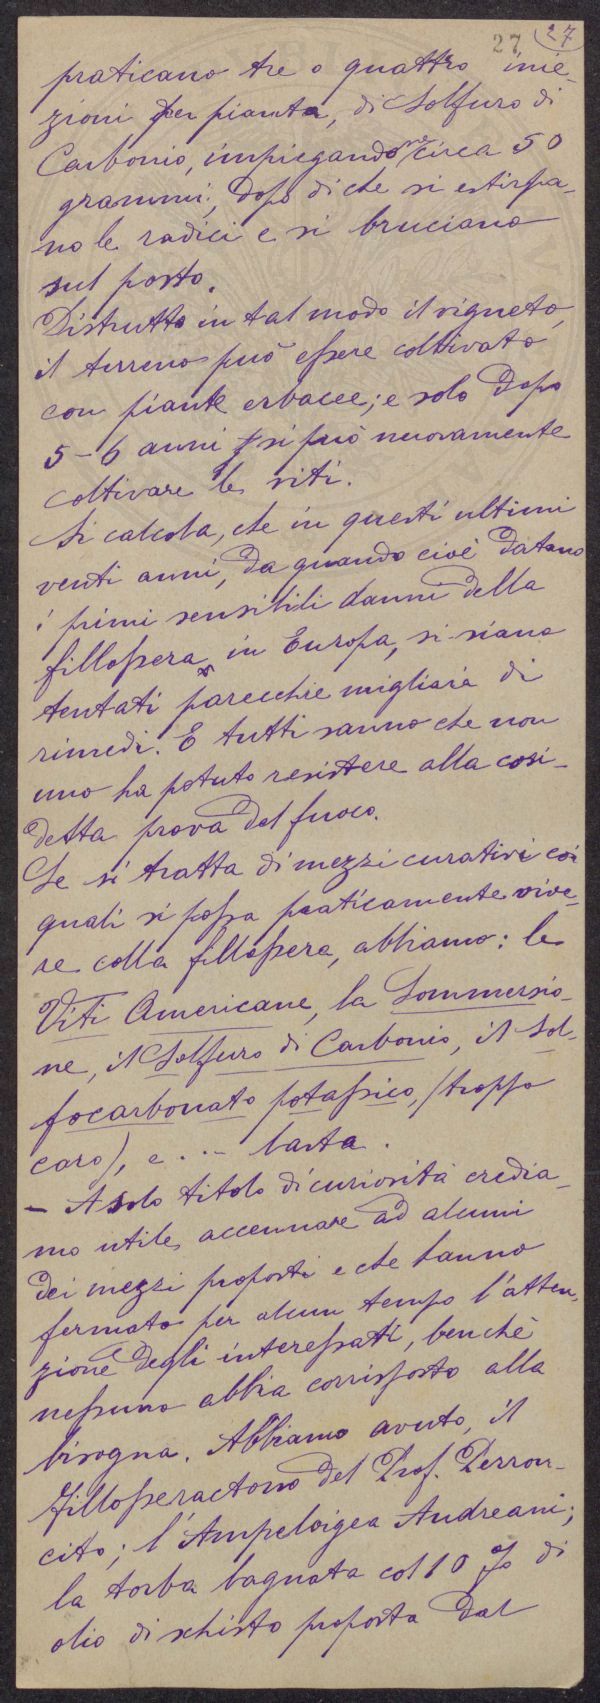 27 27
praticano tre o quattro inie-
zioni per pianta, di Solfuro di
Carbonio, impiegandone circa 50
grammi; dopo di che si estirpa-
no le radici e si bruciano
sul posto.
Distrutto in tal modo il vigneto,
il terreno può essere coltivato
con piante erbacee; e solo dopo
5-6 anni si può nuovamente
coltivare le viti.
Si calcola, che in questi ultimi
venti anni, da quando cioè datano
i primi sensibili danni della
fillossera in Europa, si siano
tentati parecchie migliaia di
rimedi. E tutti sanno che non
uno ha potuto resistere alla cosi-
detta prova del fuoco.
Se si tratta di mezzi curativi coi
quali si possa praticamente vive-
re colla fillossera, abbiamo: le
Viti Americane, la Sommersio-
ne, il Solfuro di Carbonio, il Sol-
focarbonato potassico, (troppo
caro), e ... basta.
- A solo titolo di curiosità credia-
mo utile accennare ad alcuni
dei mezzi proposti e che hanno
fermato per alcun tempo l'atten-
zione degli interessati, benchè
nessuno abbia corrisposto alla
bisogna. Abbiamo avuto, il
Fillosseractono del Prof. Perron-
cito; l'Ampeloigea Andreani;
la torba bagnata col 10 % di
olio di schisto proposta dal